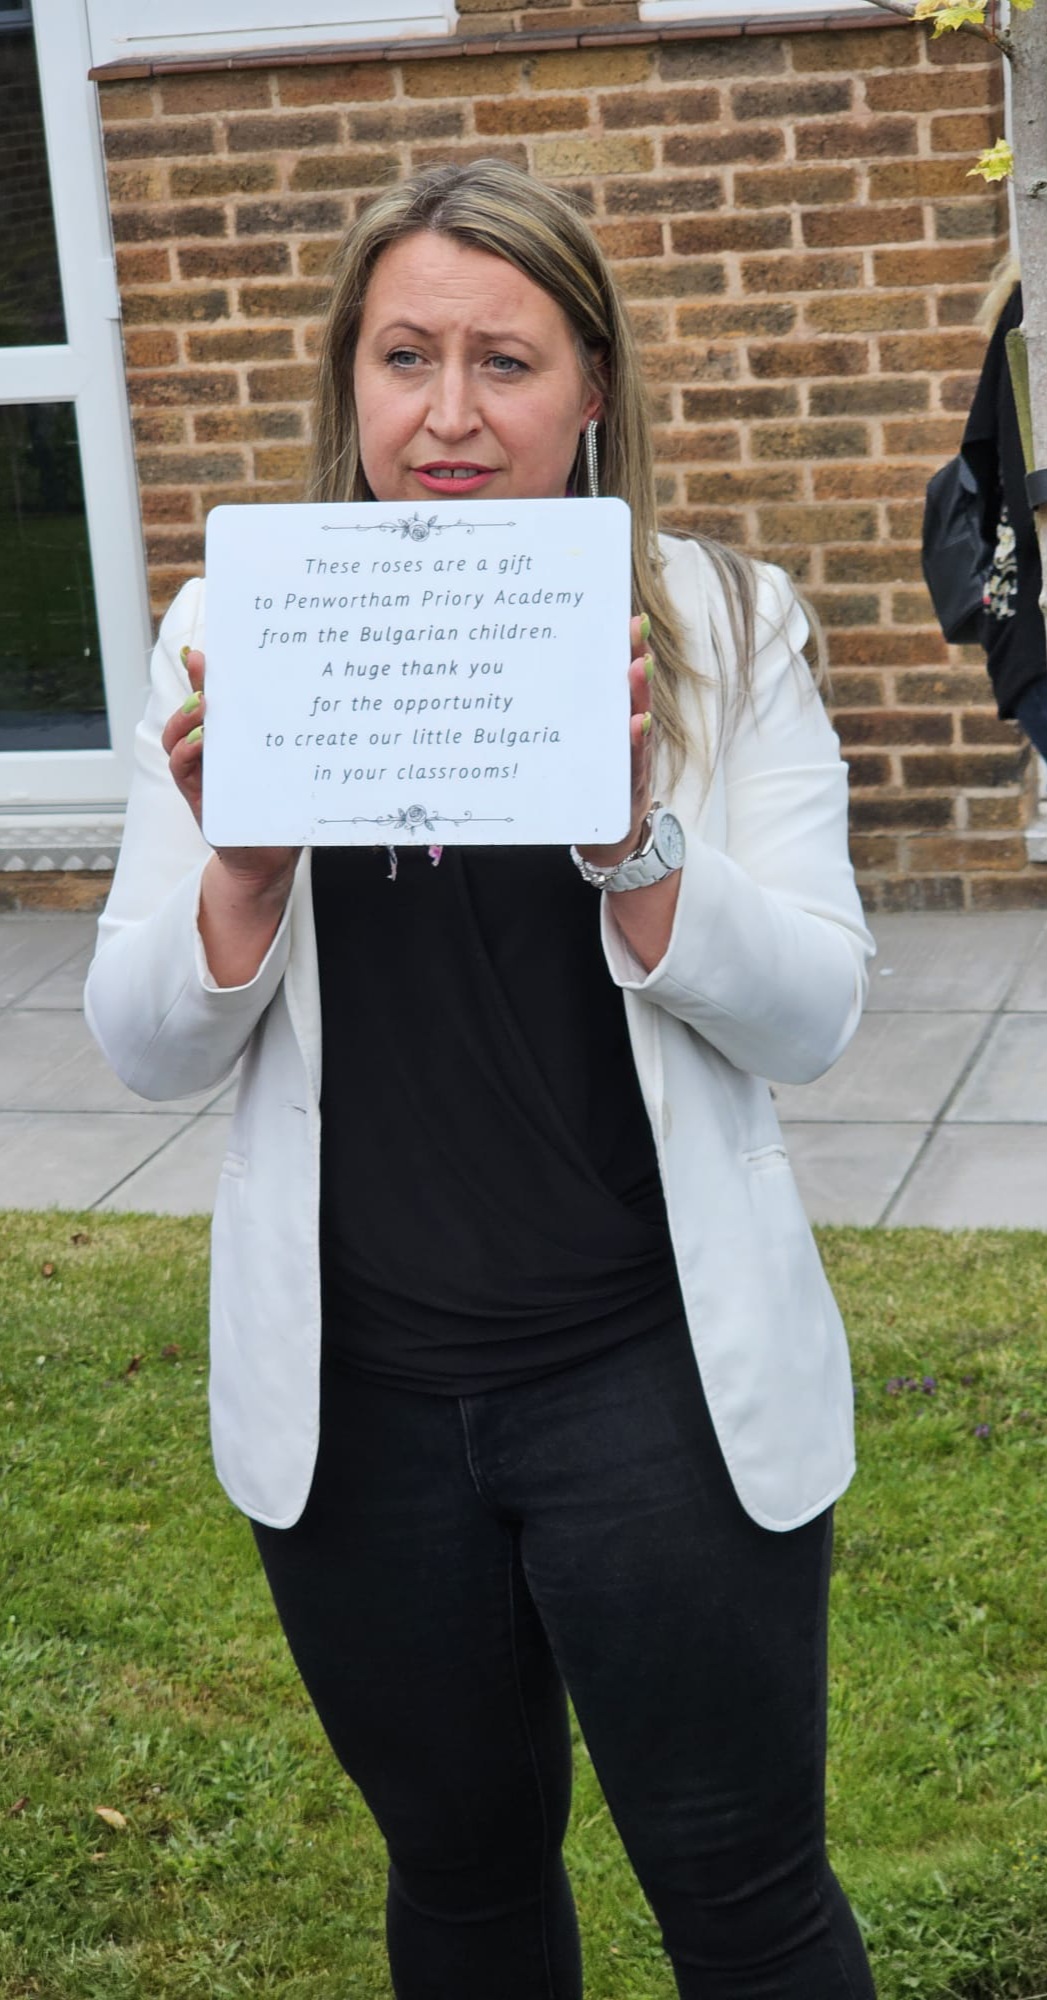 These roses are a gift
to Penwortham Priory Academy
from the Bulgarian children.
A huge thank you
for the opportunity
to create our little Bulgaria
in your classrooms!